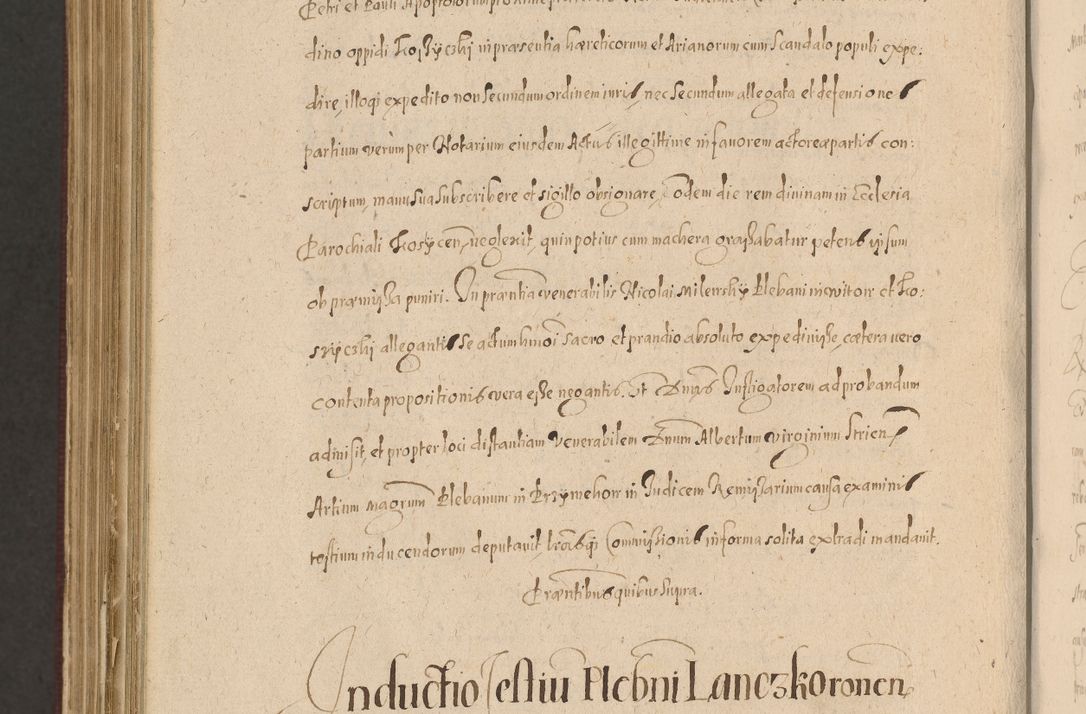 Petri et Pauli Apostolorum
dino oppidi Kossyczkj in praesentia haereticorum et Arianorum cum scandalo populi expe:
dire, illoqj expedito non secundum ordinem iuris, nec secundum allegata et defensiones
partium verum per Notarium eiusdem Actus illegittime in fauorem actoreae partis con:
scriptum, manu sua subscribere et sigillo obsignare, Eodem die rem diuinam in Ecclesia
Parochiali Kosÿcen, neglexit, quin potius cum machera grassabatur petens ipsum
ob praemissa puniri. In prntia venerabilis Nicolai Milenskÿ Plebani in et Ko:
sÿczkj allegantis se actum hmoi sacro et prandio absoluto expediuisse, caetera vero
contenta propositionis vera esse negantis. Et Dnus Instigatorem ad probandum
admisit, et propter loci distantiam Venerabilem Dnum Albertum virginium Strien,
Artium Magrum Plebanum in in Iudicem Remissarium causa examinis
testium inducendorum deputauit, lrasqj Commissionis in forma solita extradi mandauit.
Praentibus quibus supra.
Inductio Testiu Plebni Lanczkoronen,